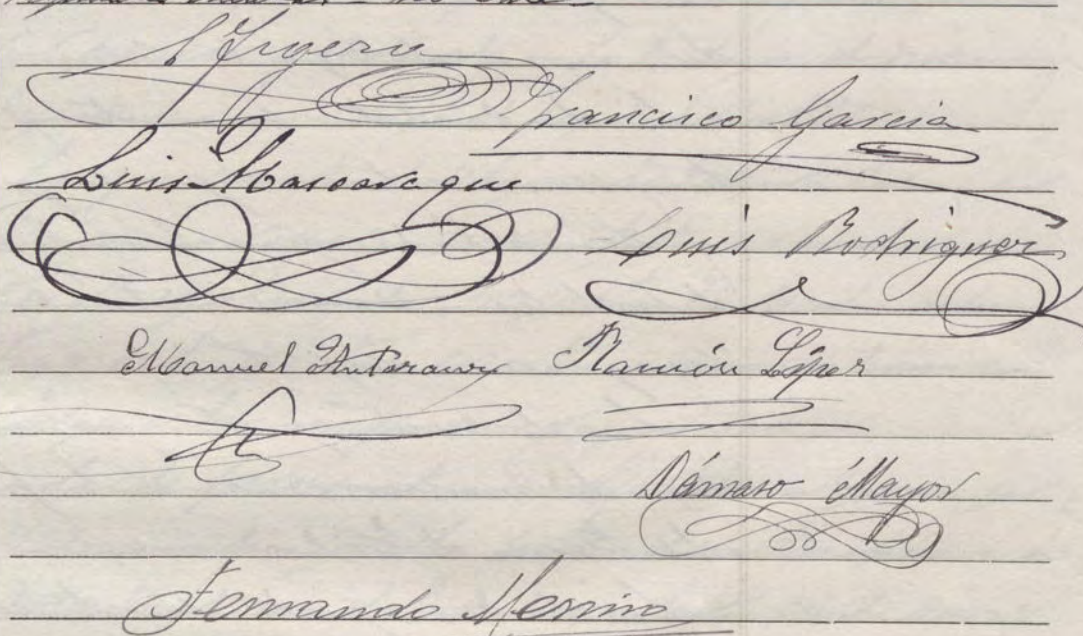 no vale
Francisco Garcia
Luis Mascaraque
Luis Rodriguez
Manuel Ramón López
Dámaso Mayor
Fernando Merino